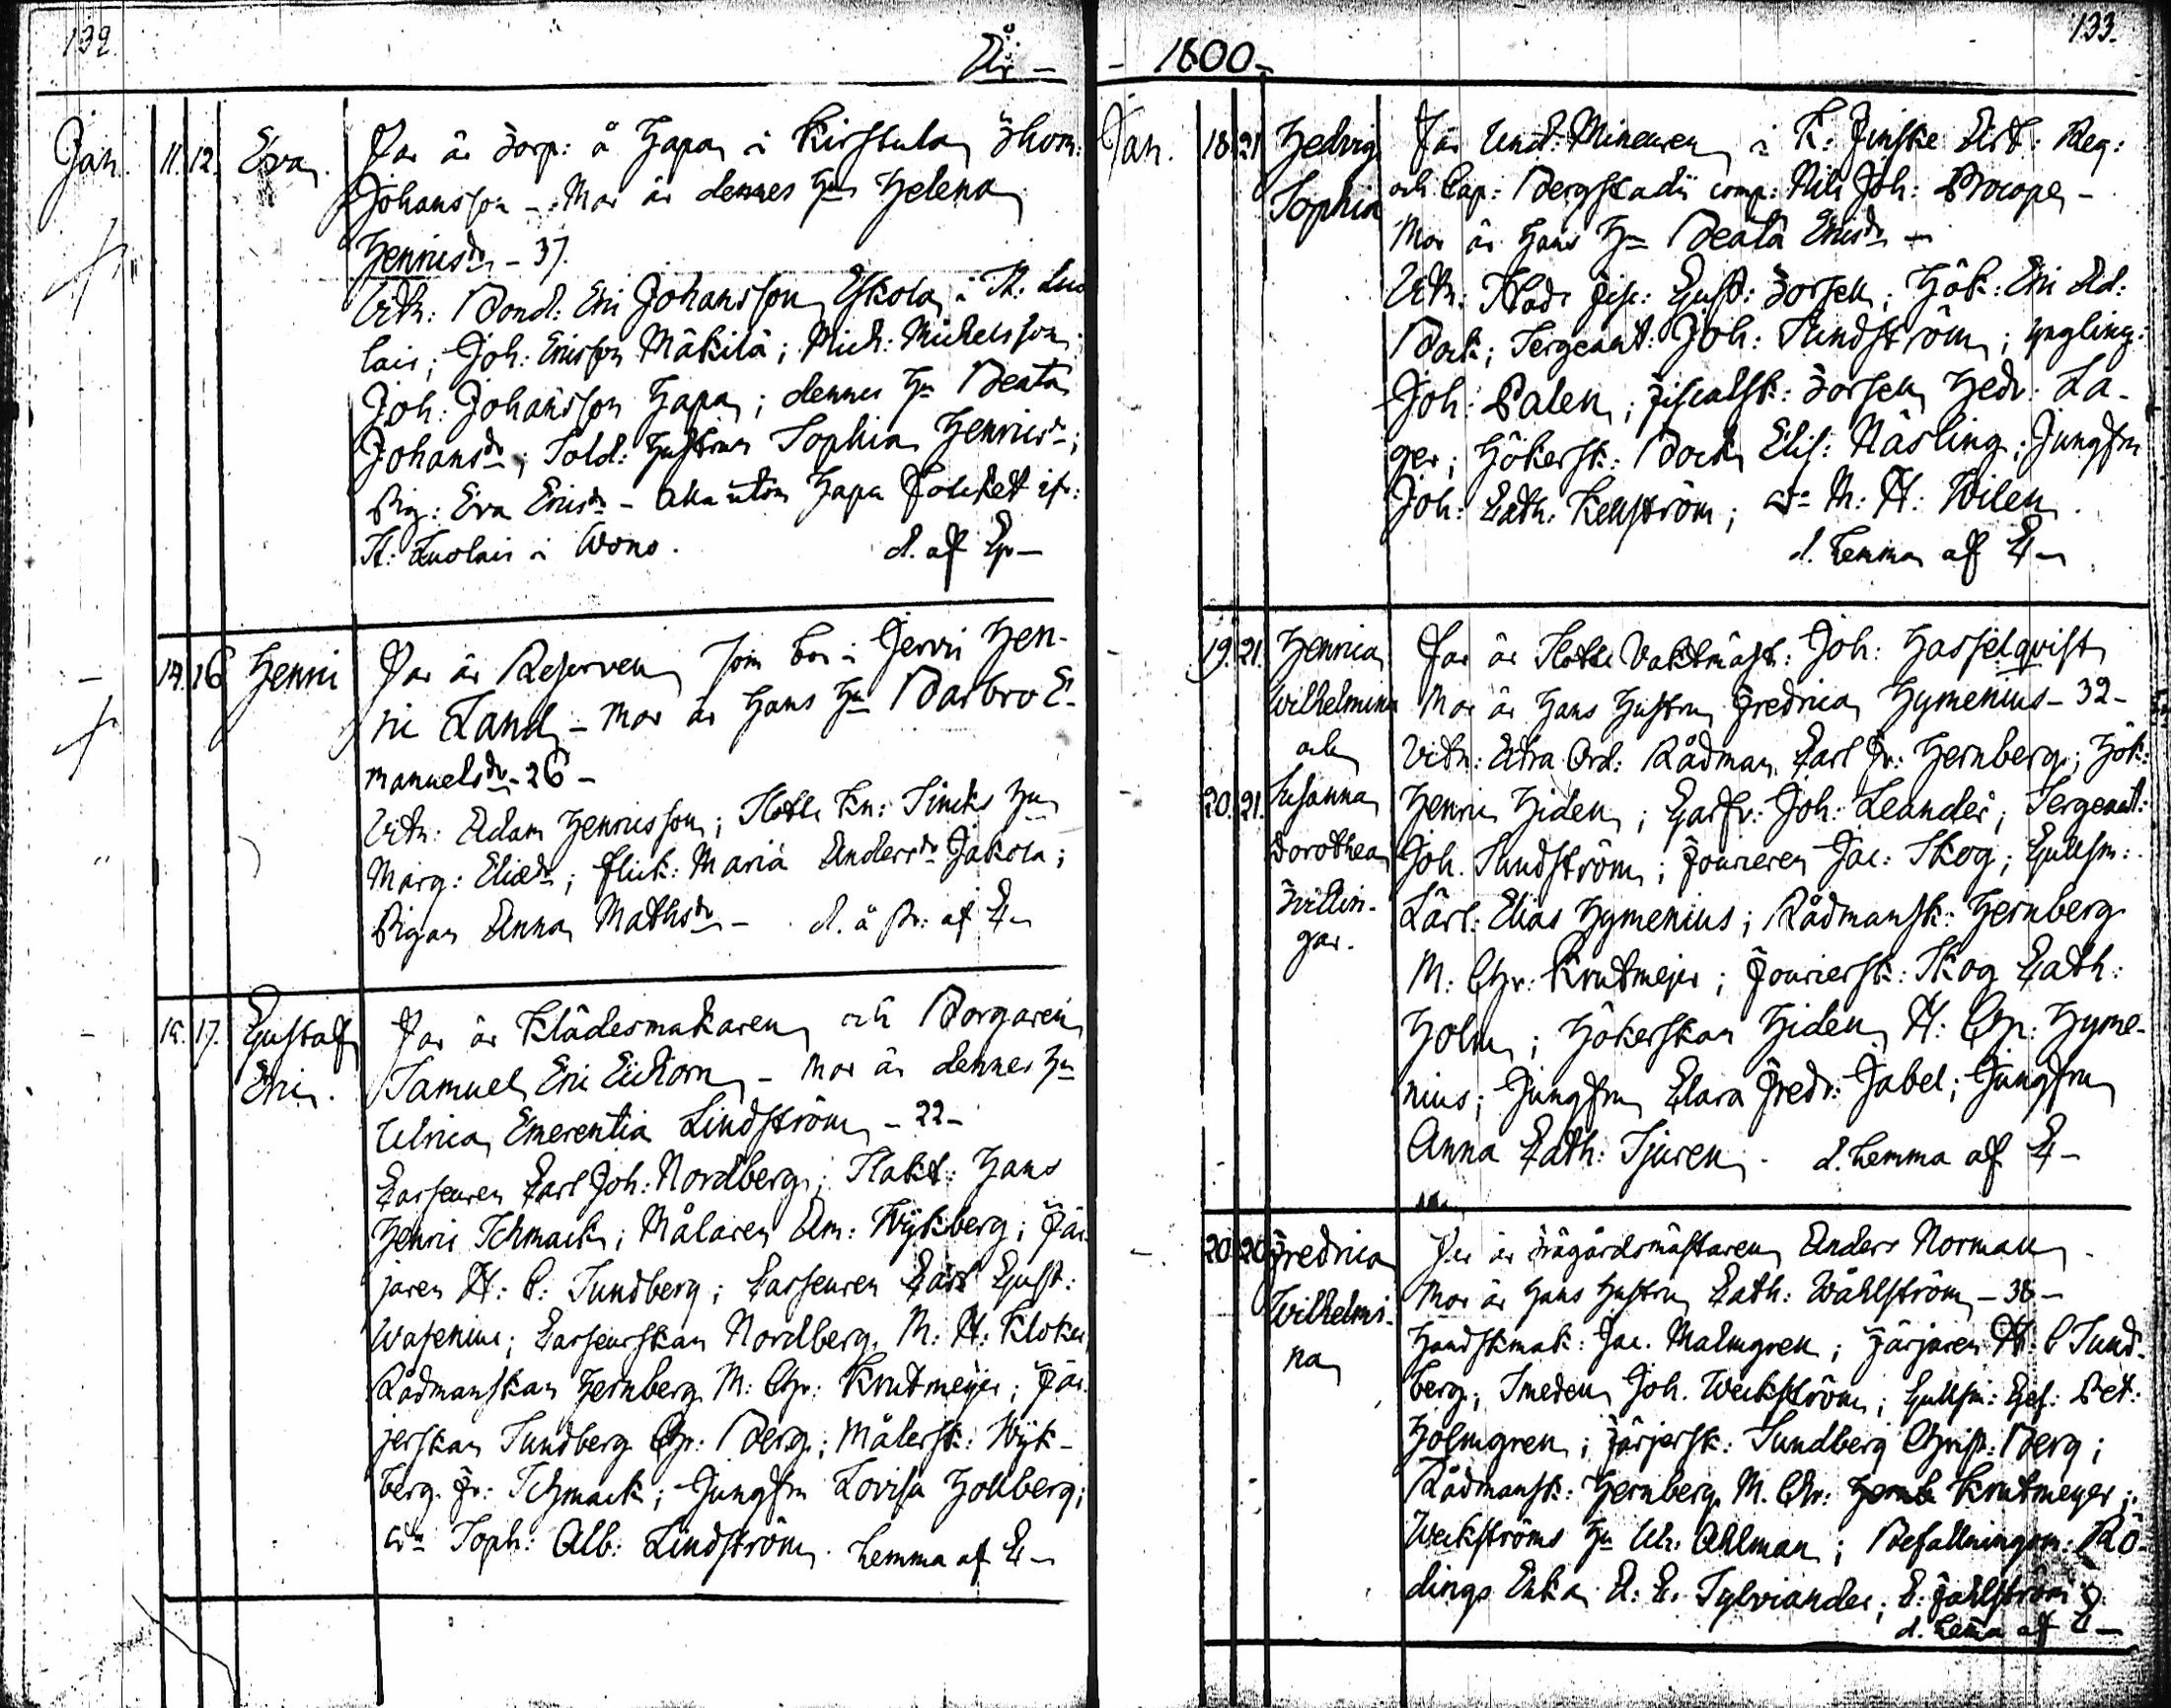 132
År –
Jan. 11. 12. Eva. Far är Torp: å Hapa i Kirstula Thom:
Johansson – Mor är dennes Hu Helena
Henricsdr – 37.
Vitn: Bond: Eric Johansson Eskola i St. Luo
lais; Joh: Ericsson Mäkilä; Mich: Michelsson;
Joh: Johansson Hapa; dennes Hu Beata
Johansdr; Sold: Hustrun Sophia Henricsdr;
Pig: Eva Ericsdr – alla utom Hapa Folcket ifr:
St: Luolais i Wono. d. af
14. 16 Henric Far är Reserven som bor i Jervis Hen-
ric Land – Mor är Hans Hu Barbro E-
manuelsdr – 26 –
Vitn: Adam Henricsson; Slotts Kn: Sincks Hu
Marg: Eliædr; flick: Maria Andersdr Jakola;
Pigan Anna Mathsdr – d. å Pr: af
15. 17. Gustaf Far är Klädesmakaren och Borgaren
Eric. Samuel Eric Eickorn – Mor är dennes Hu
Ulrica Emerentia Lindström – 22 –
Garfvaren Carl Joh: Nordberg; Slakt: Hans
Henric Schmack; Målaren Am: Wykberg; Fär-
jaren A: C: Sundberg; Garfvaren Carl Gust:
Wasenius; Nordberg M: A: Kloker
Rådmanskan Hernberg M: Chr: Krutmejer; Fär-
jerskan Sundberg Chr: Berg; Målersk: Wyk-
berg Fr: Schmack; Jungfru Lovisa Hollberg;
do Soph: Alb: Lindström. hemma af
133.
– 1800 –
Jan. 18. 21 Hedvig Far Und: Mineuren i K: Finske Art: Reg:
Sophia och Cap: Bergstadii comp: Nils Joh: Procope –
Mor är Hans Hu Beata Ericsdr –
Vitn: Stads fisc: Gust: Forsell; Hök: Eric Ad:
Bock; Sergeant: Joh: Sundström; yngling:
Joh: Palen; Fiscalsk: Forsell Hedv: La-
ger; Hökersk: Bock Elis: Näsling; Jungfru
Joh: Cath: Kellström; do M: H: Wilen.
d. hemma af
19. 21. Henrica Far är Slotts Vaktmäst: Joh: Hasselqvist
Wilhelmina Mor är Hans Hustru Fredrica Hymenius – 32 –
och Vitn: Extra Ord: Rådman Carl Fr: Hernberg; Hök:
20. 21. Susanna Henric Hiden; Garfv: Joh: Leander; Sergeant:
Dorothea Joh. Sundström; Fourieren Jac: Skog; Gullsm:
Tvillin- Lärl: Elias Hymenius; Rådmansk: Hernberg
gar. M: Chr: Krutmejer; Fouriersk: Skog Cath:
Holm; Hökerskan Hiden A: Chr: Hyme-
nius; Jungfru Clara Fredr: Jabel; Jungfru
Anna Cath: Sjuren. d. hemma af
20 20 Fredrica Far är Trägårdsmästaren Anders Norman
Wilhelmi- Mor är Hans Hustru Cath: Wåhlström – 38 –
na Handskmak: Jac. Malmgren; Färjaren A: C Sund-
berg; Smeden Joh. Weckström; Gullsm: Ges: Pet:
Holmgren; Färjersk: Sundberg Christ: Berg;
Rådmansk: Hernberg M. Chr: Krutmeyer;
Weckströms Hu Ulr: Ahlman; Befallningsm: Rö-
dings Enka A: E: Sylviander; E: Fahlström
d. hema af